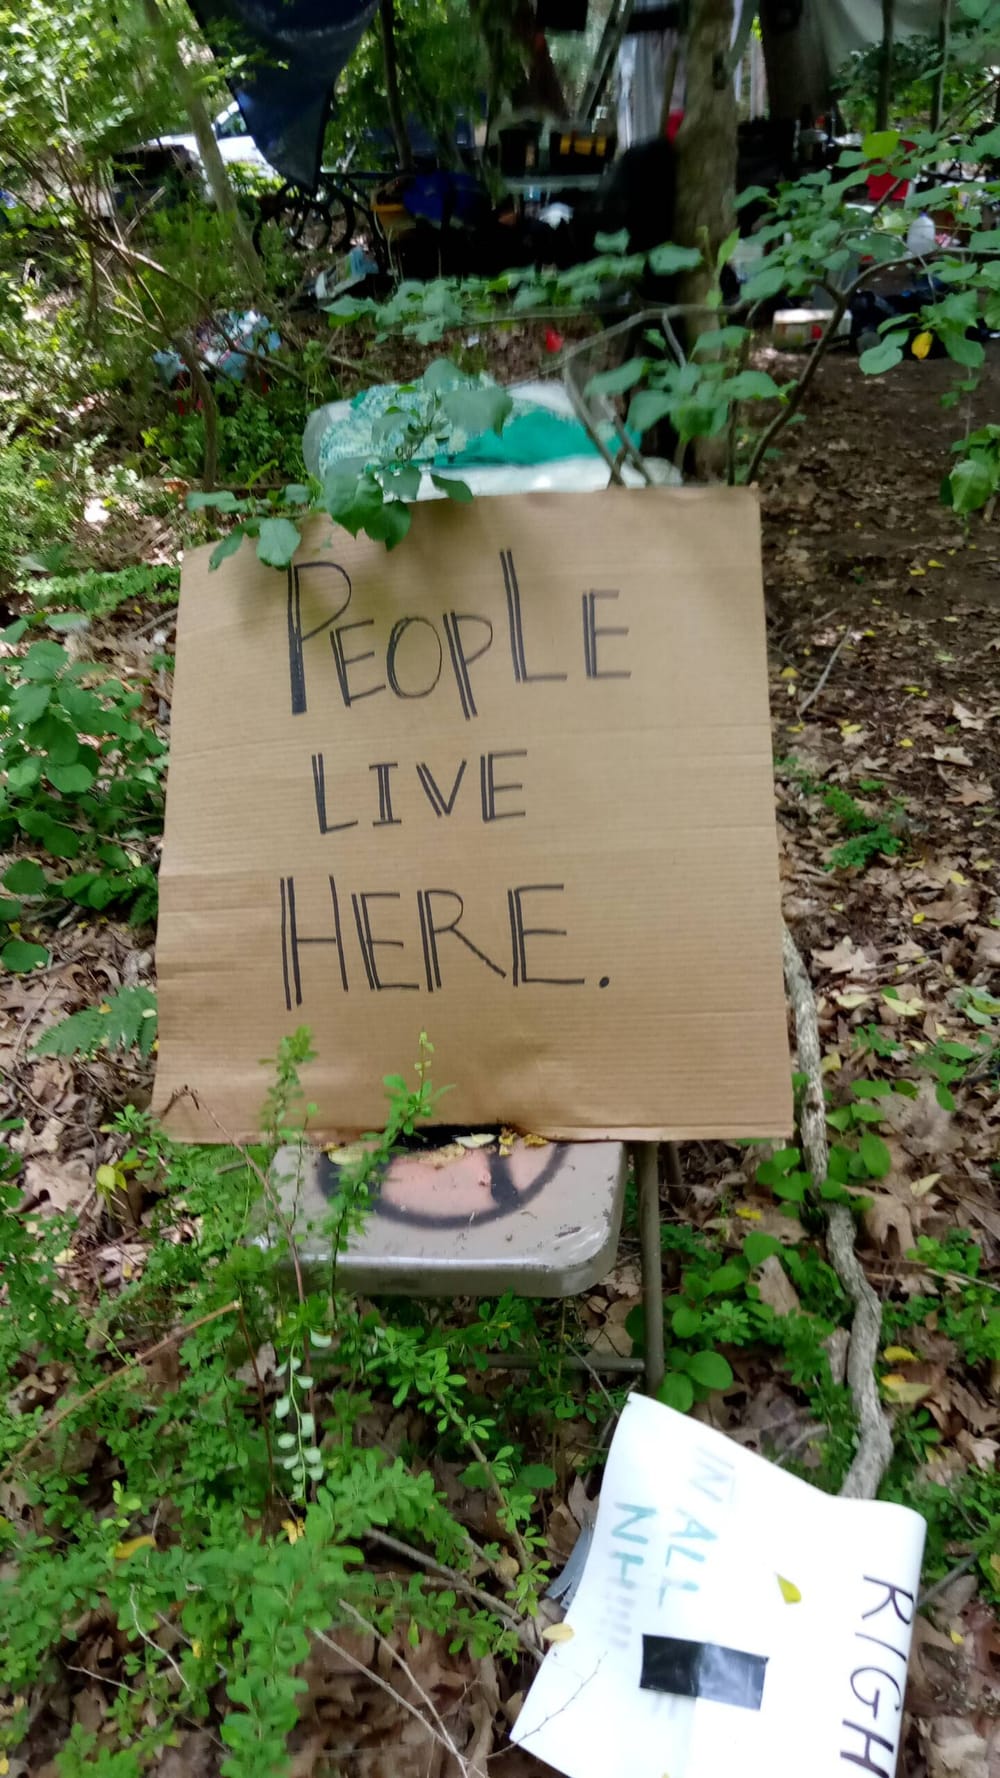 PEOPLE
LIVE
HERE.
RIGH
IN ALL
NH